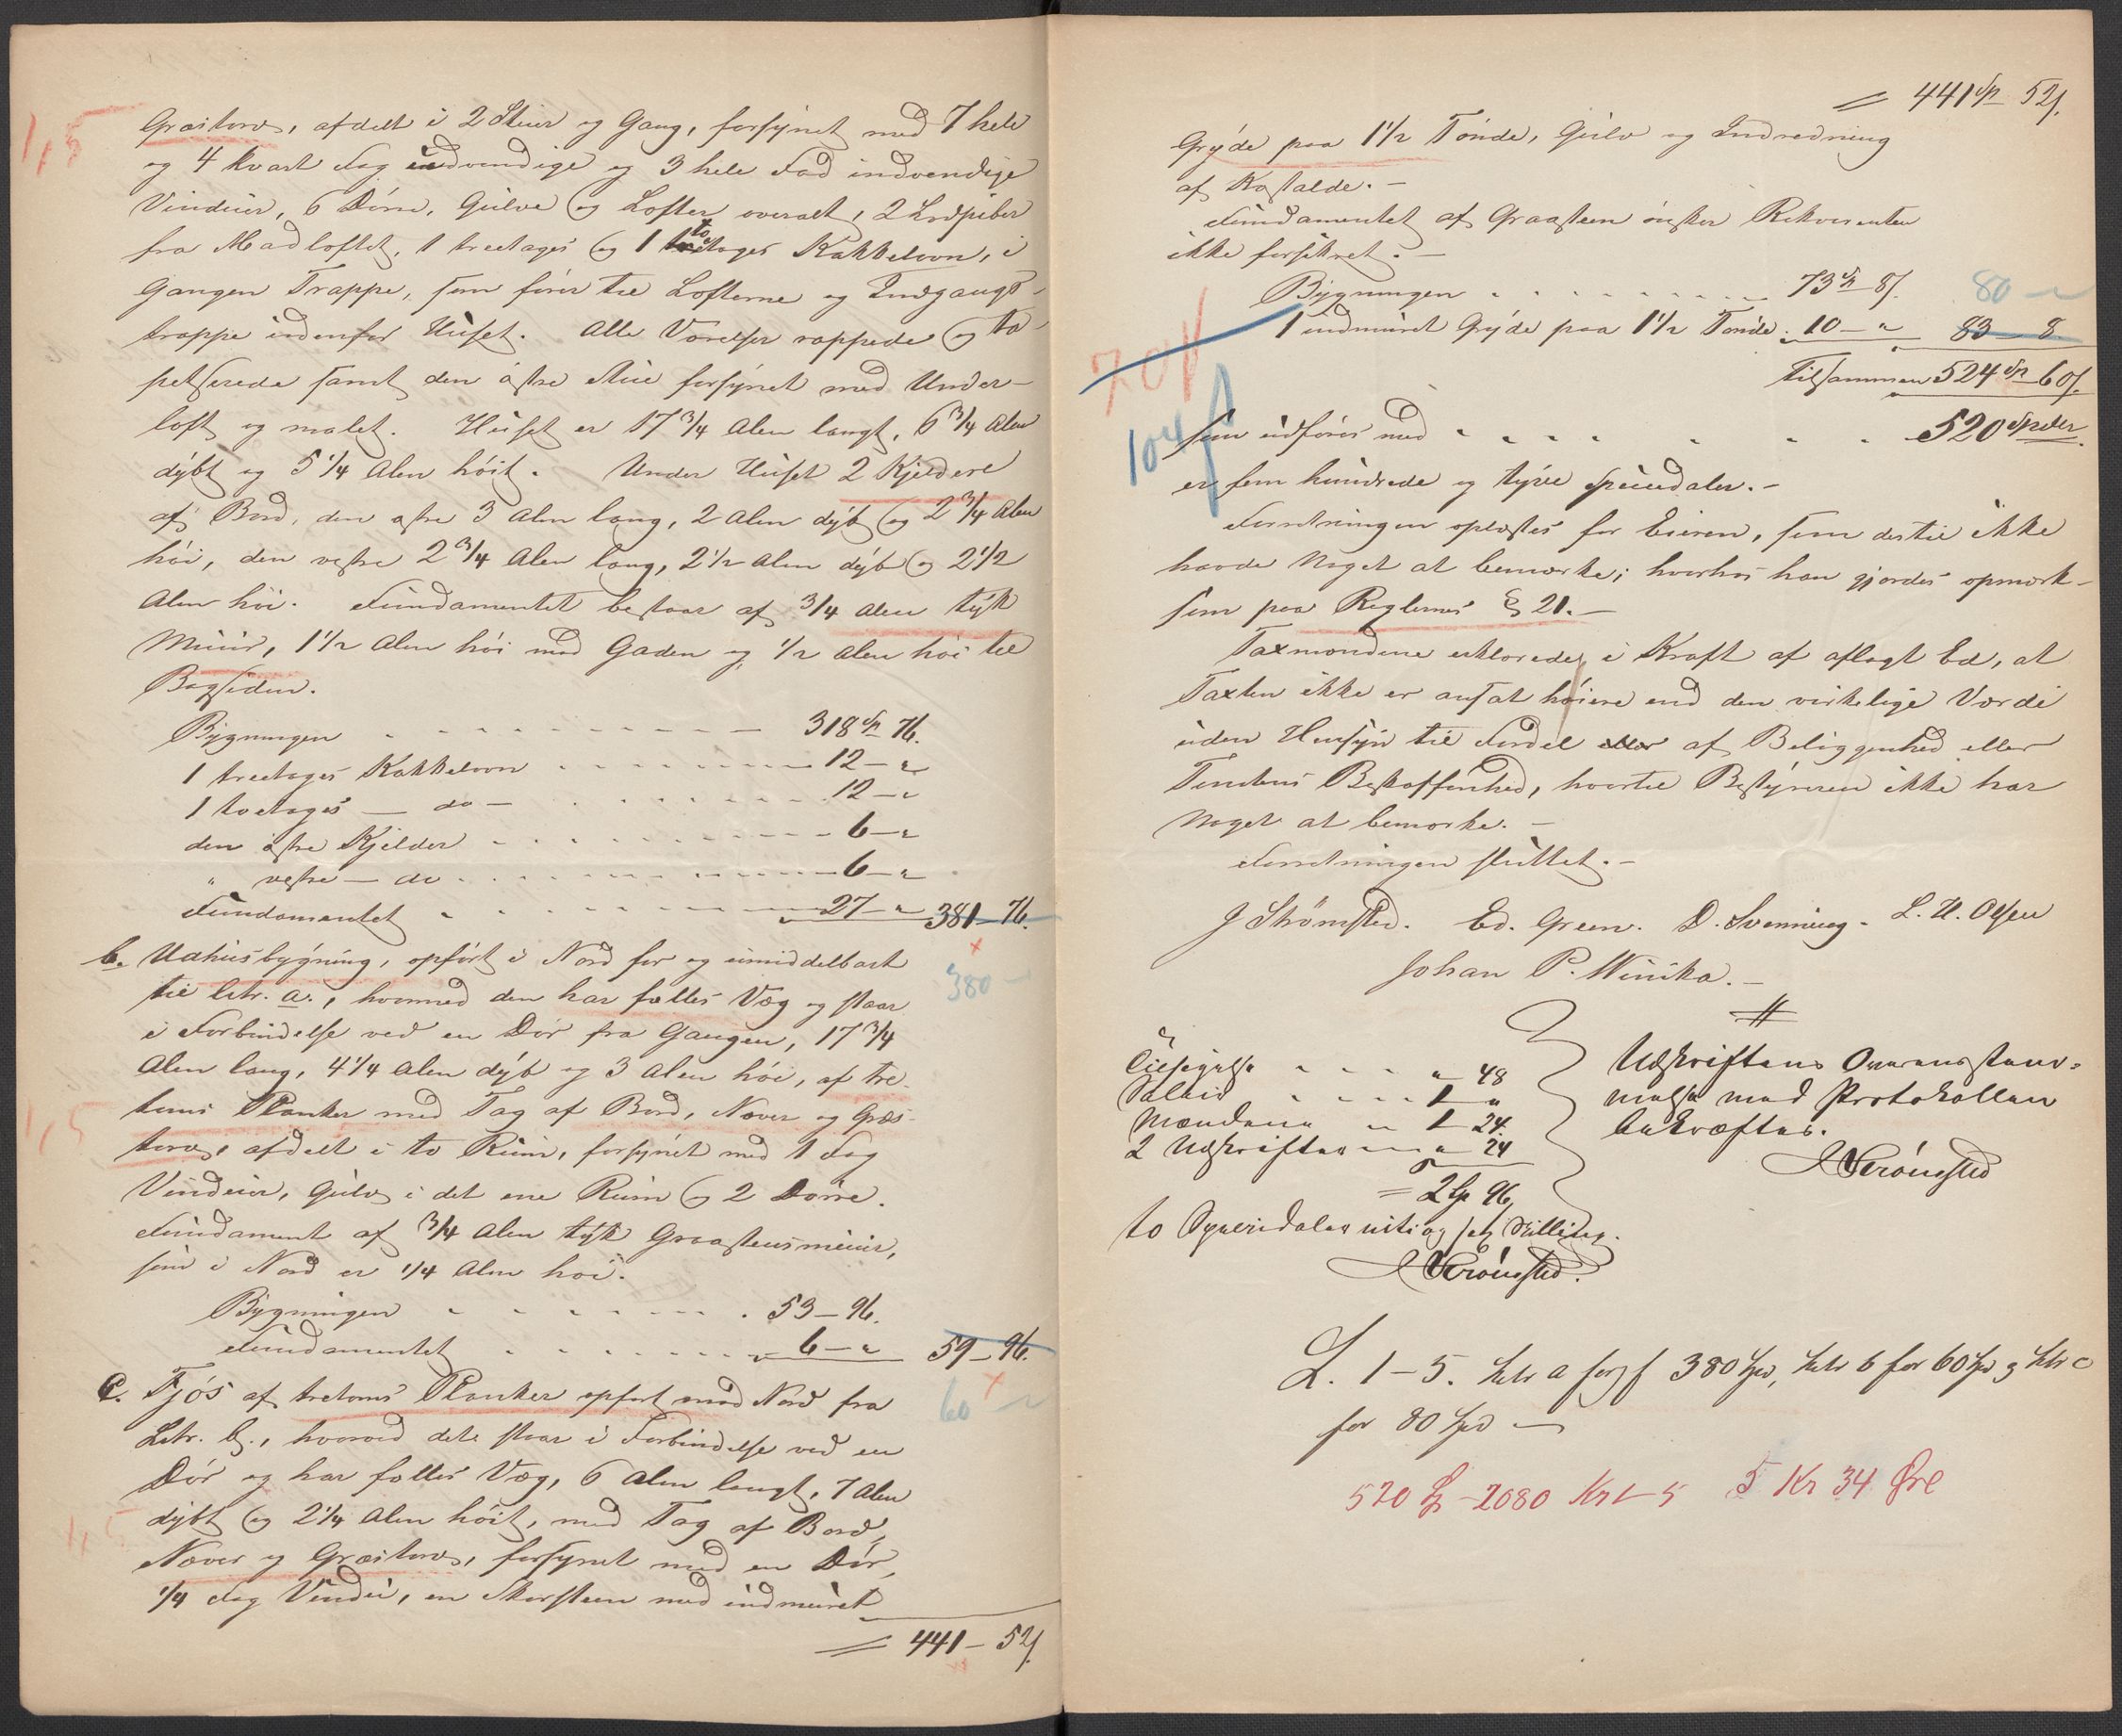 1,5
Græstorv, afdelt i 2 Stuer og Gang, forsynet med 7 hele
og 4 kvart Fag udvendige og 3 hele Fad indvendige
Vinduer, 6 Dörre, Gulve og Lofter overalt, 2 Ledpiber
fra Madloftet, 1 treetages og 1 toetages Kakkelovn, i
Gangen Trappe, som förer til Lofterne og Indgangs-
trappe indenfor Huset. Alle Værelser rappede og ta-
petserede samt den östre Stue forsynet med Under-
loft og malet. Huset er 17 3/4 Alen langt, 6 3/4 Alen
dybt og 5 1/4 Alen höit. Under Huset 2 Kjeldere
af Bord, den östre 3 Alen lang, 2 Alen dyb og 2 3/4 Alen
höi, den vestre 2 3/4 Alen lang, 2 1/2 Alen dyb og 2 1/2
Alen höi. Fundamentet bestaar af 3/4 Alen tyk
Muur, 1 1/2 Alen höi mod Gaden og 1/2 Alen höi til
Bagsiden.
Bygningen 318 Sp 76.
1 treetages Kakkelovn 12 - "
1 toetages - do - 12 - "
den östre Kjelder 6 - "
" vestre - do 6 - "
Fundamentet 27 - " 381 - 76.
380 -
b. Udhusbygning, opfört i Nord for og umiddelbart
til litr. a., hvormed den har fælles Væg og staar
i Forbindelse ved en Dör fra Gangen, 17 3/4
Alen lang, 4 1/4 Alen dyb og 3 Alen höi, af tre
1,5
toms Planker med Tag af Bord, Næver og Græs-
torv, afdelt i to Rum, forsynet med 1 Fag
Vinduer, Gulv i det ene Rum og 2 Dörre.
Fundament af 3/4 Alen tyk Graasteensmuur,
som i Nord er 1/4 Alen höi.
Bygningen 53 - 96.
Fundamentet 6 - " 59 - 96.
60 -
c. Fjös af tretoms Planker opfört mod Nord fra
Litr. b., hvorved det staar i Forbindelse ved en
Dör og har fælles Væg, 6 Alen langt, 7 Alen
dybt og 2 1/4 Alen höit, med Tag af Bord,
1,5
Næver og Græstorv, forsynet med en Dör,
1/4 Fag Vindu, en Skorsteen med indmuret
= 441 - 52 s.
= 441 Sp 52 s.
Gryde paa 1 1/2 Tönde, Gulv og Indredning
af Kostalde. -
Fundamentet af Graasteen önsker Rekvirenten
ikke forsikret. -
Bygningen 73 Sp 8 s. 80 -
1 indmuret Gryde paa 1 1/2 Tönde 10 - " 83 - 8
Tilsammen 524 Sp 60 s.
70 s
104 s
som udföres med 520 Spdlr.
er fem hundrede og tyve Speciedaler. -
Forretningen oplæstes for Eieren, som dertil ikke
havde Noget at bemærke; hvorhos han gjordes opmærk-
som paa Reglernes § 21. -
Taxmændene erklærede, i Kraft af aflagt Ed, at
Taxten ikke er ansat höiere end den virkelige Værdi
uden Hensyn til Fordel af Beliggenhed eller
Tomtens Beskaffenhed, hvortil Bestyreren ikke har
Noget at bemærke. -
Forretningen sluttet. -
J Strömsted. Ed. Green. D. Svenning. L. U. Olsen
Johan P. Winika. -
Tilsigelse " 48
Salair 1 "
Mændene 1 24.
2 Udskrifter " 24
= 2 Sp 96
to Speciedaler nitiog sex Skilling.
J Strömsted.
Udskriftens Overensstem-
melse med Protokollen
bekræftes.
J Strömsted
L. 1-5. Litr a fors f 380 Spd, Litr b for 60 Spd og Litr c
for 80 Spd -
520 Sp - 2080 Kr 1-5 5 Kr 34 Øre